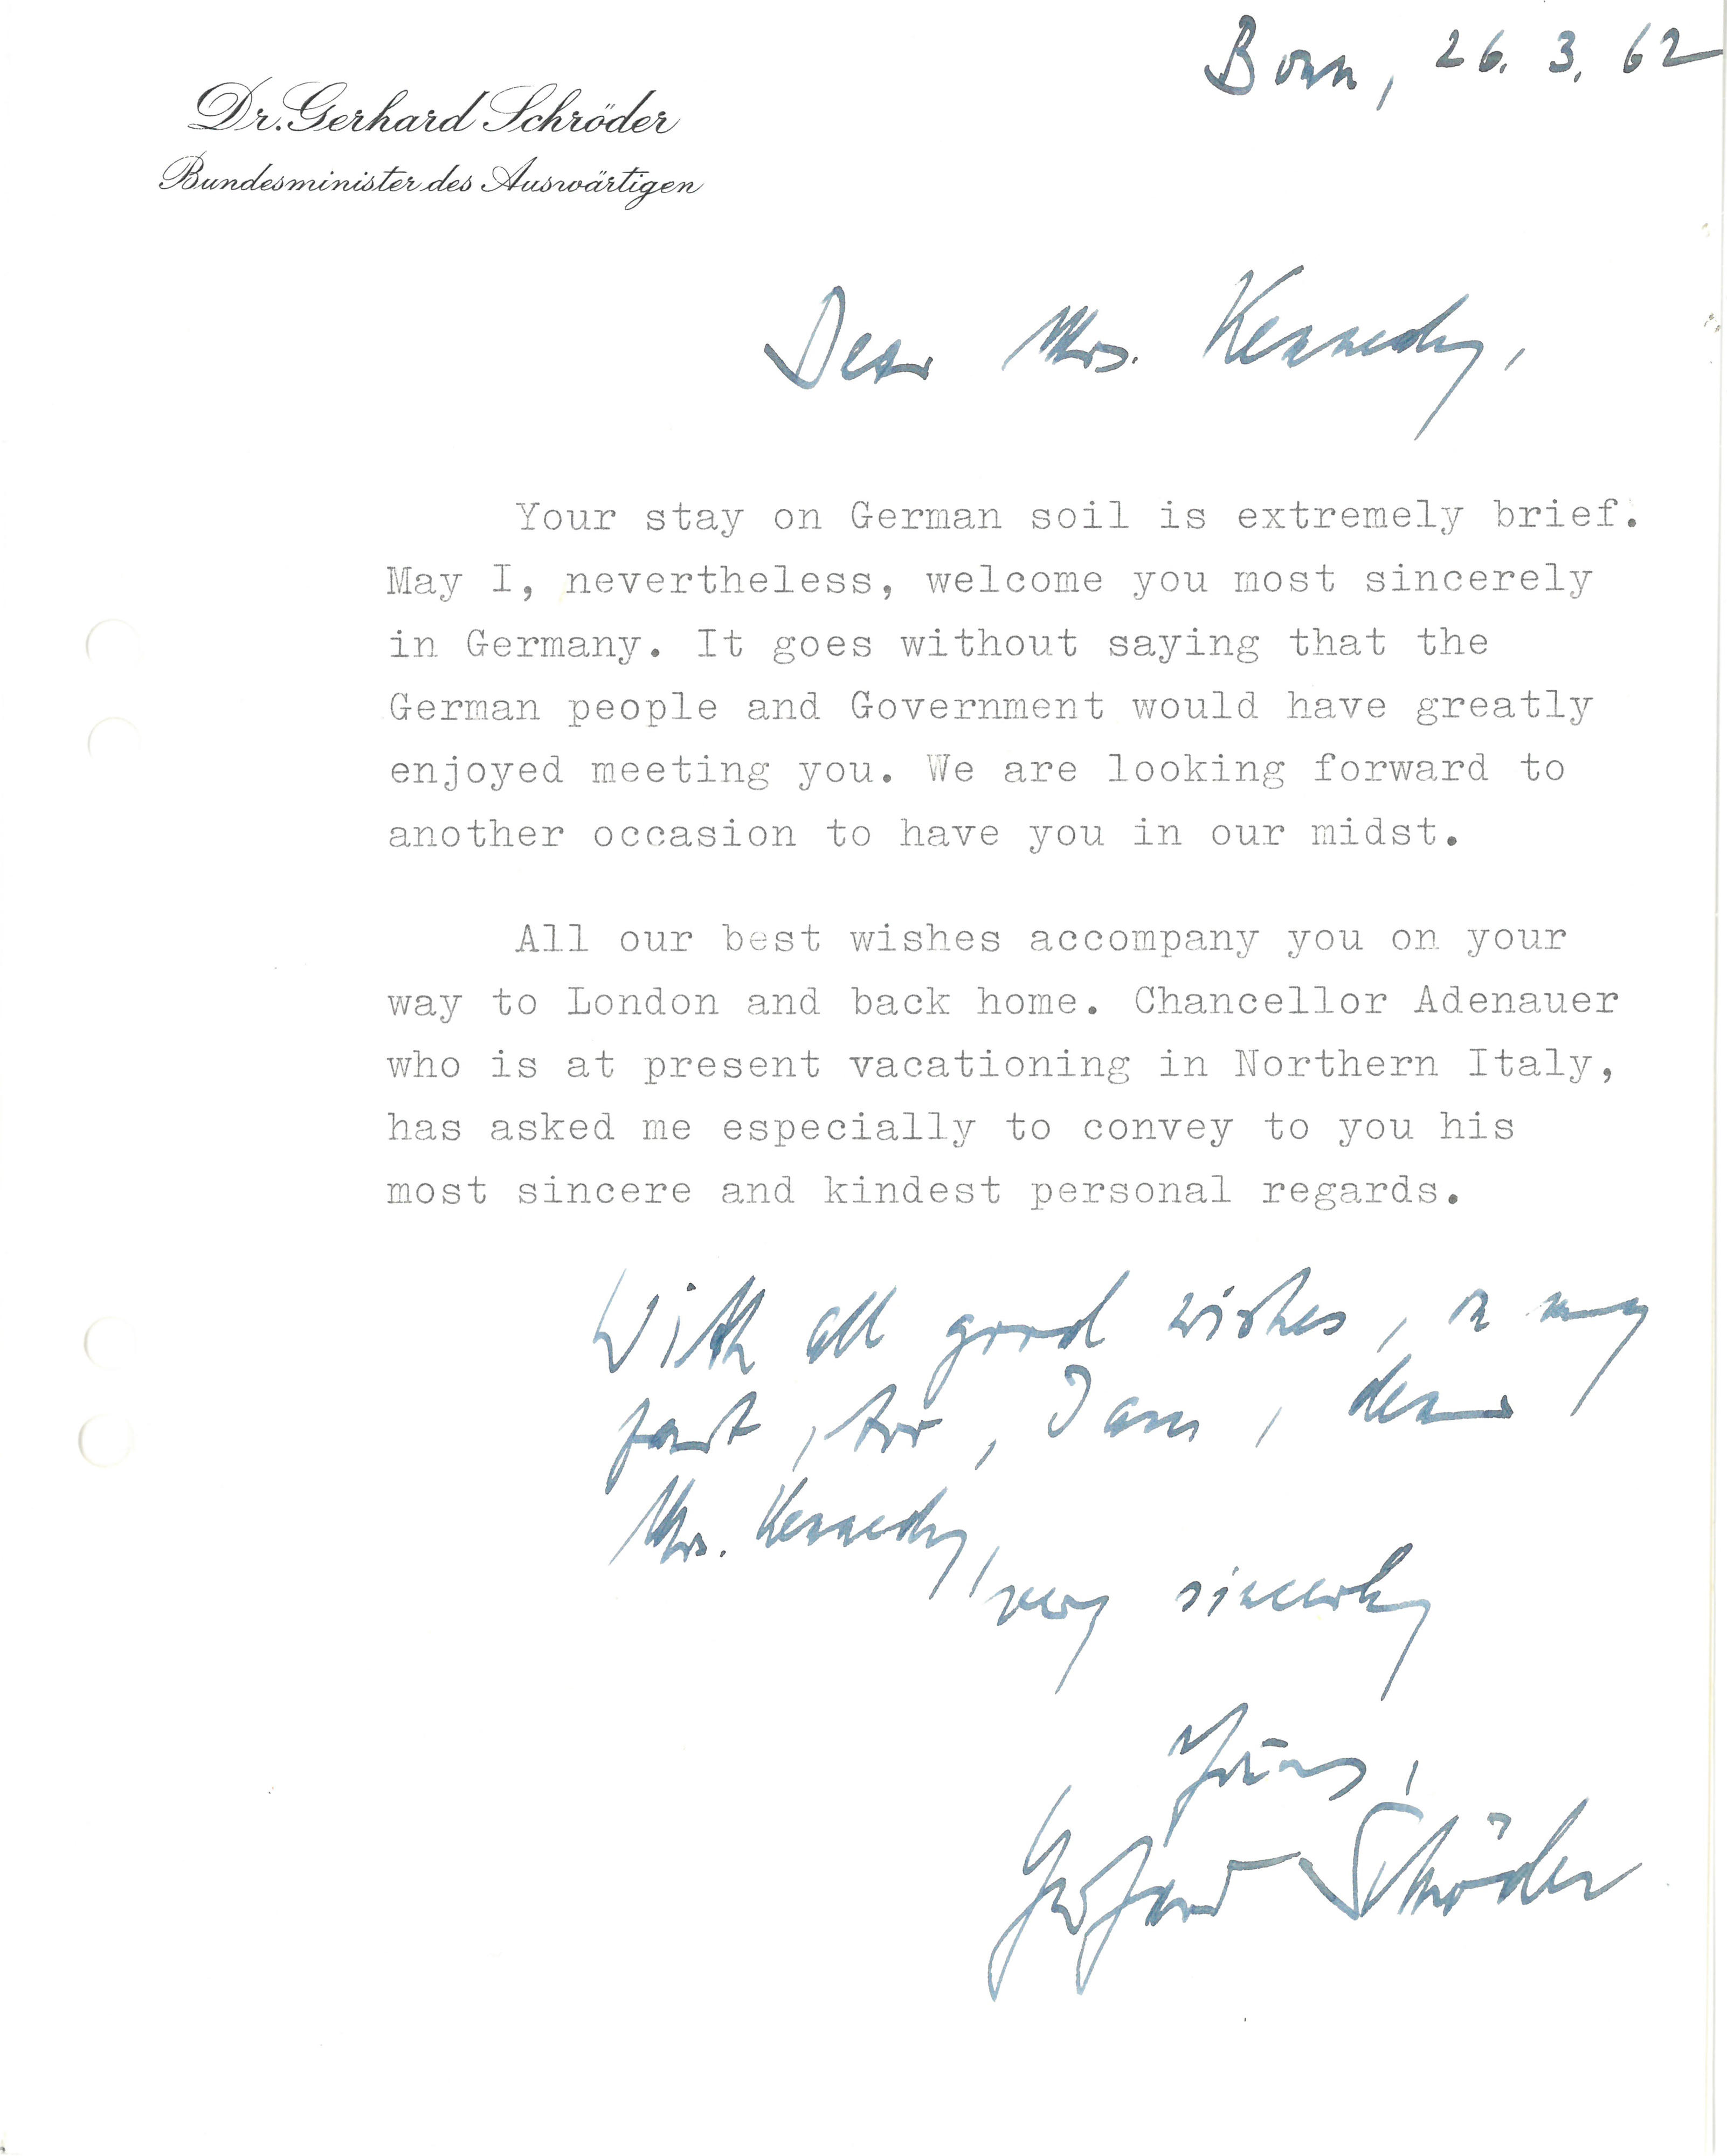 Born, 26. 3. 62
Dr. Gerhard Schröder
Bundesminister des Auswärtigen
Dear Mrs. Kennedy,
Your stay on German soil is extremely brief.
May I, nevertheless, welcome you most sincerely
in Germany. It goes without saying that the
German people and Government would have greatly
enjoyed meeting you. We are looking forward to
another occasion to have you in our midst.
All our best wishes accompany you on your
way to London and back home. Chancellor Adenauer
who is at present vacationing in Northern Italy,
has asked me especially to convey to you his
most sincere and kindest personal regards.
With all good wishes, on my
part, too, I am, dear
Mrs. Kennedy,
very sincerely
Yours,
Gerhard Schröder